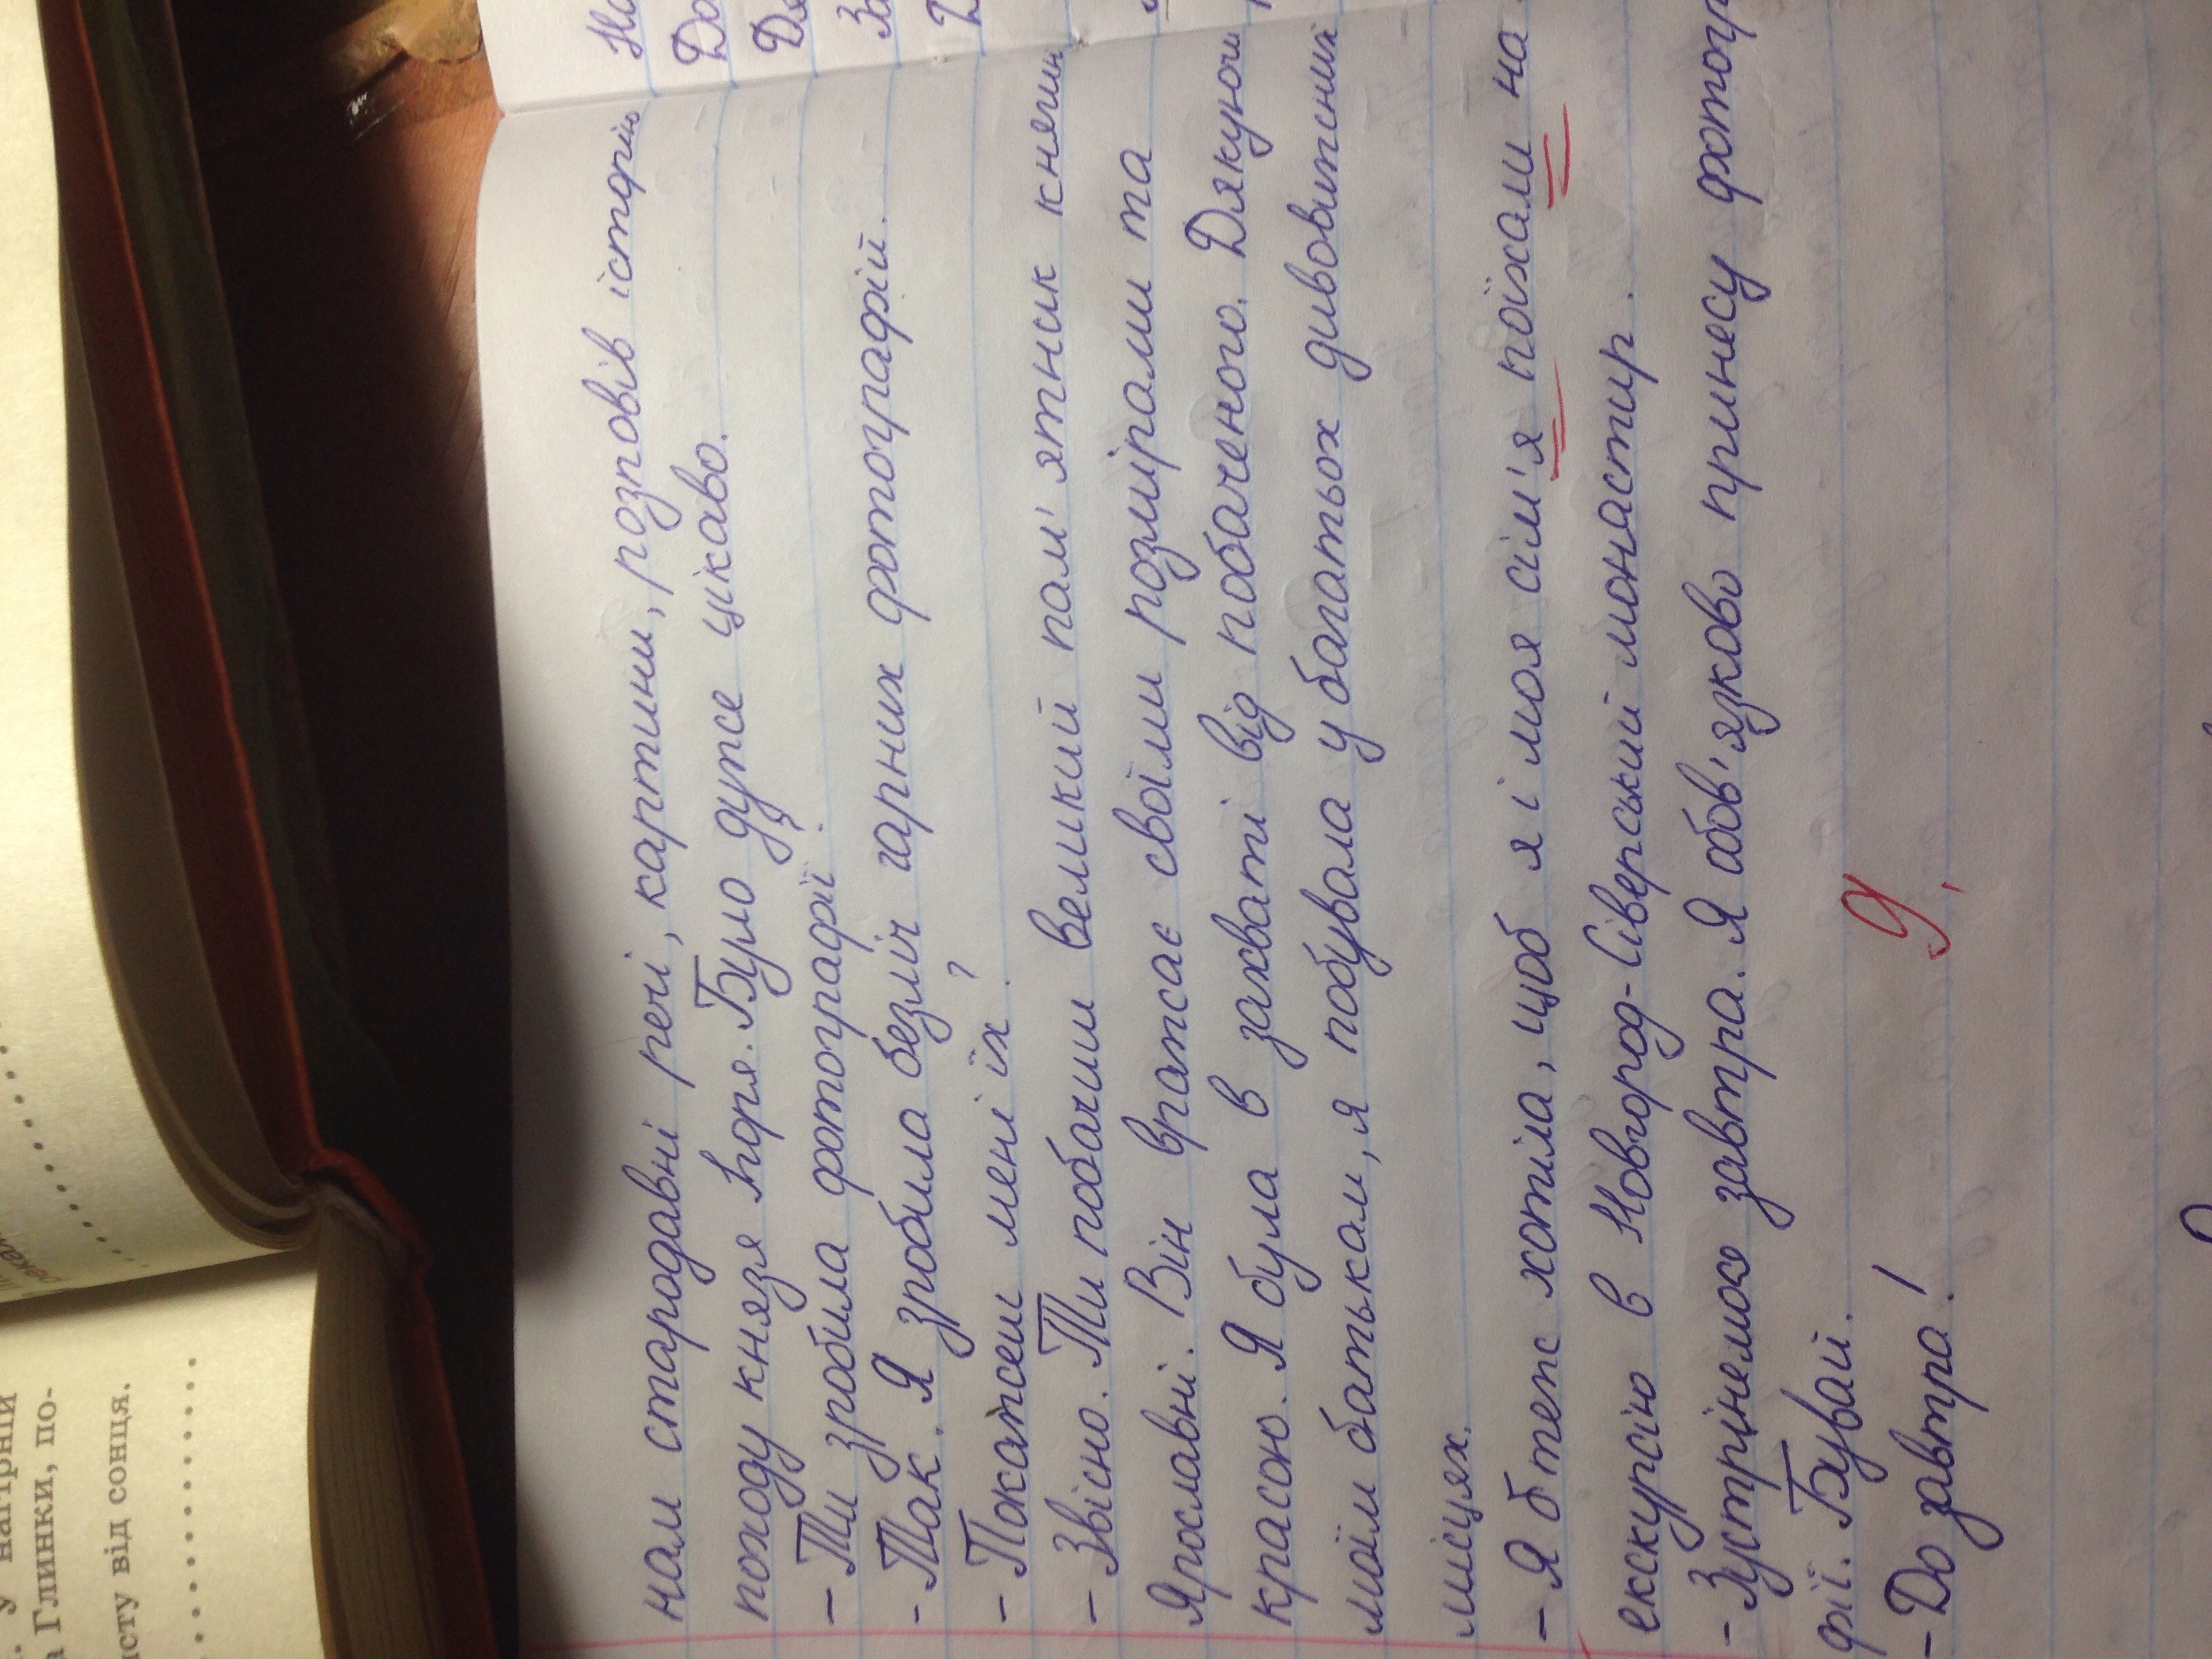 нам стародавні речі, картини, розповів історію
походу князя Ігоря. Було дуже цікаво.
- Ти зробила фотографії?
- Так. Я зробила безліч гарних фотографій.
- Покажеш мені їх?
- Звісно. Ти побачиш великий пам'ятник княгині
Ярославні. Він вражає своїми розмірами та
красою. Я була в захваті від побаченого. Дякуючи
моїм батькам, я побувала у багатьох дивовижних
місцях.
- Я б теж хотіла, щоб я і моя сім'я поїхали на
екскурсію в Новгород-Сіверський монастир.
- Зустрінемось завтра. Я обов'язково принесу фотогр
фії. Бувай.
- До завтра!
9
На
До
Де
За
нагірній
Глинки, по-
исту від сонця.